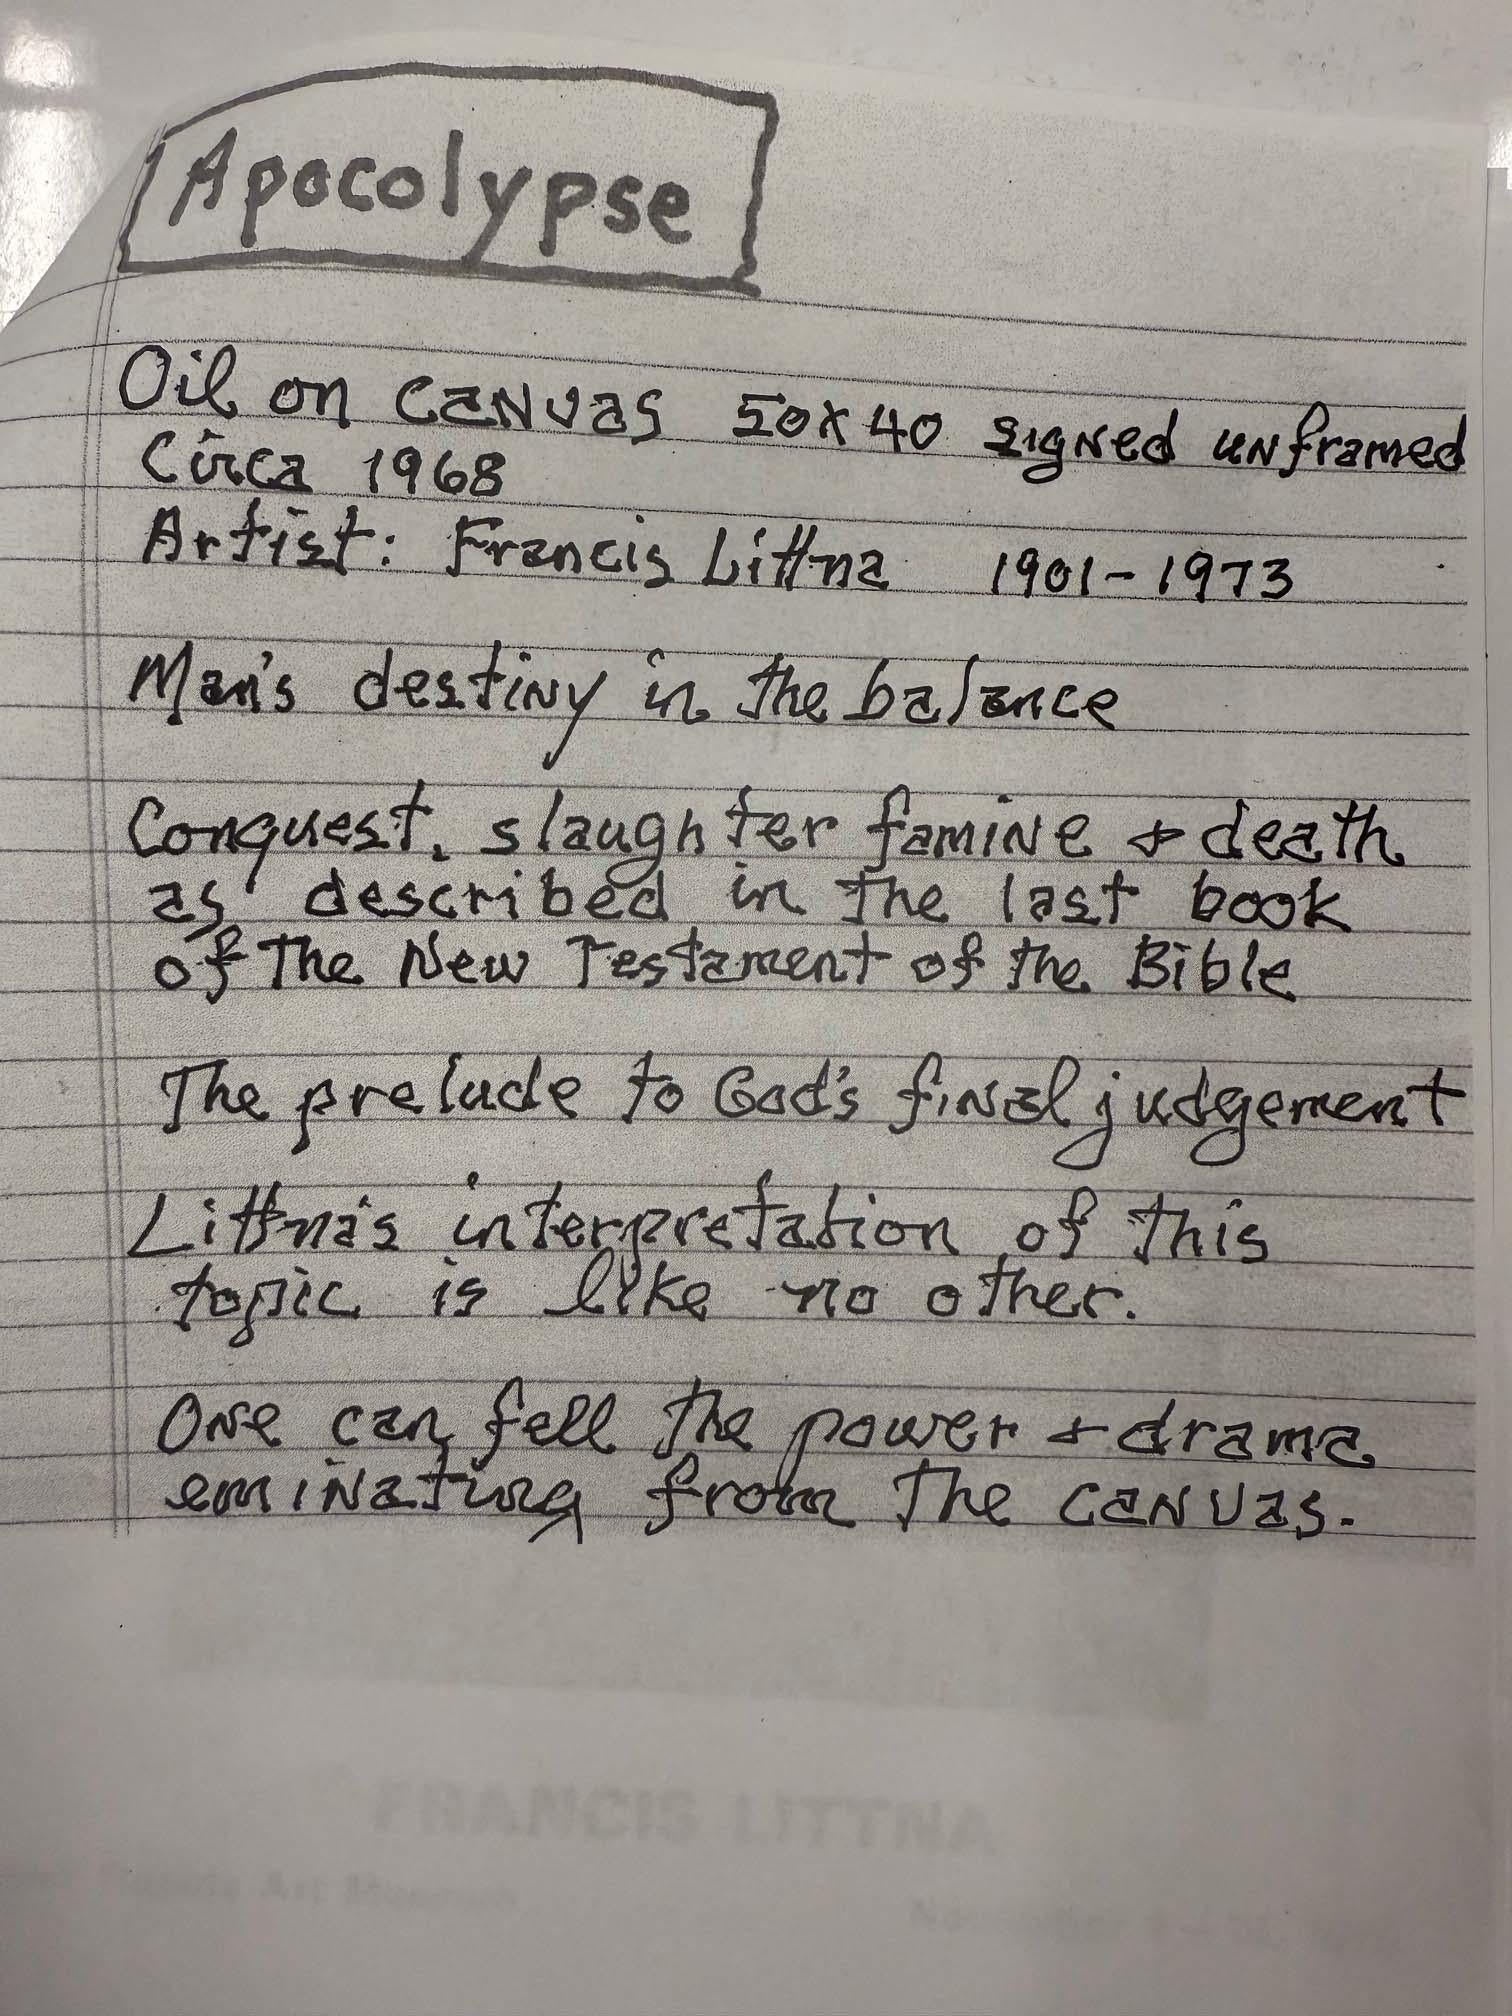 Apocolypse
Oil on canvas 50x40 signed unframed
Circa 1968
Artist: Francis Littna 1901-1973
Man's destiny in the balance
Conquest, slaughter famine & death
as described in the last book
of The New Testament of the Bible
The prelude to God's final judgement
Littna's interpretation of this
topic is like no other.
One can fell the power & drama
eminating from The canvas.
FRANCIS LITTNA
Art Museum